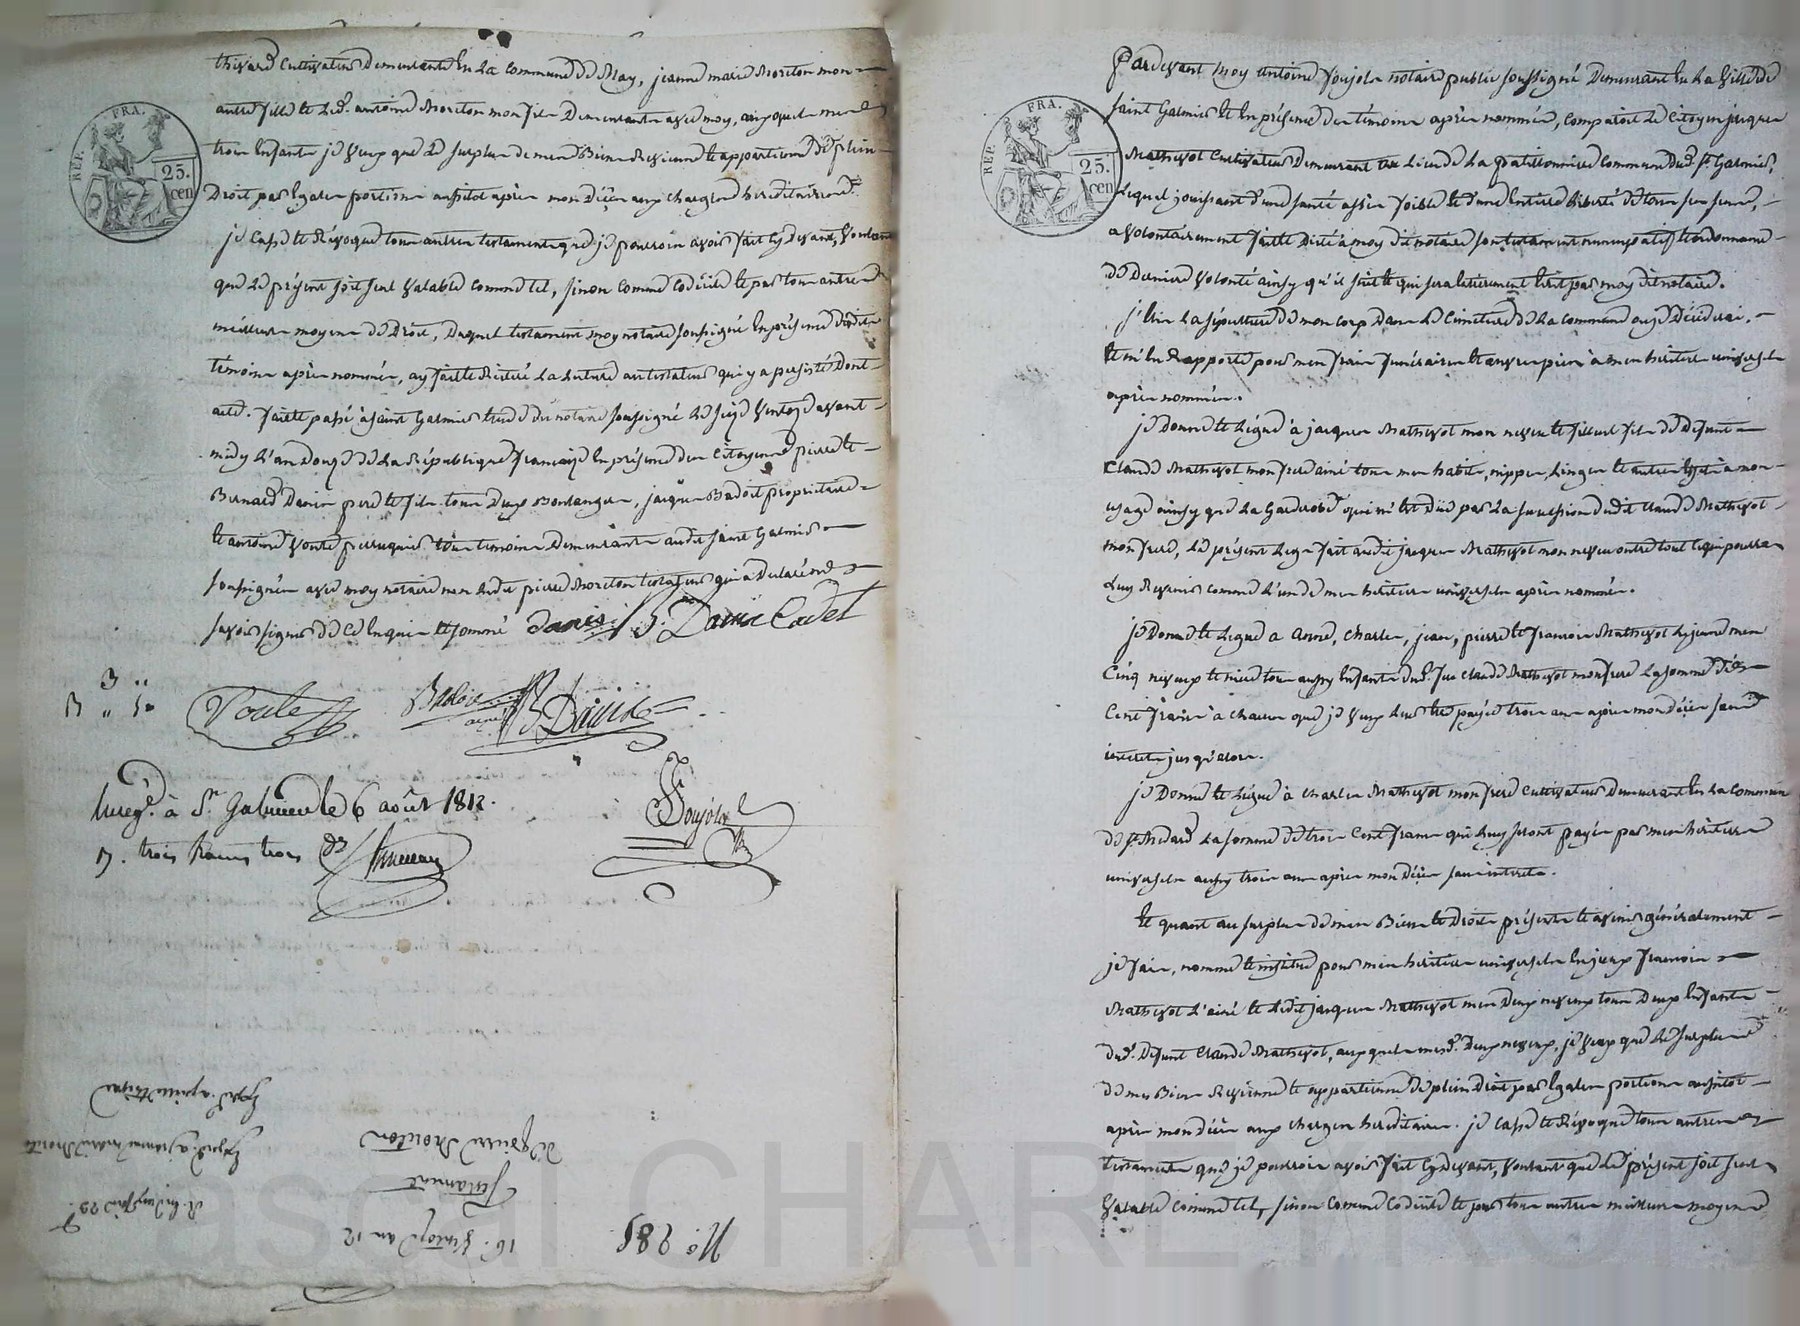 thivard Cultivateurs Demeurants En La Commune De May, jeanne marie Moreton mon
autre fille et led. antoine Moreton mon fils Demeurants avec moy, auxquels mes
trois Enfants je Veux que Le surplus de mes Biens Revienne et appartienne De plein
Droit par Egales portions aussitot après mon Décès aux charges héréditaires.
je Casse et Révoque tous autres testaments que je pourrois avoir fait Cy Devant, Voulant
que Le présent soit seul Valable Comme tel, sinon Comme Codicile et par tous autres
meilleurs moyens De Droit, Duquel testament moy notaire soussigné En présence desdits
témoins après nommés, ay fait et Réitéré La Lecture au testateur qui y a persisté Dont
acte. fait et passé à saint Galmier Etude du notaire soussigné Le seize Ventose avant
midy L'an Douze De La République française En présence des Citoyens pierre et
Bernard Danis pere et fils tous Deux Boulangers, jacques Badoit propriétaire
et antoine Voute perruquier tous témoins Demeurants audit saint Galmier
soussignés avec moy notaire non Ledit pierre Moreton testateur qui a Déclaré ne
savoir signer De Ce Enquis et sommé Danis B. Danis Cadet
3 ..
B .. 30
Voute Badoit ainé
Enreg.é à St. Galmier le 6 août 1812.
R. trois francs trois
Poujole
N.o 289
16. Ventose an 12
Testament
De pierre Moreton
FRA.
REP.
25.
cen
Pardevant moy antoine Poujole notaire public soussigné Demeurant En La Ville De
saint Galmier Et En présence des témoins après nommés, Comparoit Le Citoyen jacques
Mathevot Cultivateur Demeurant au Lieu de La patissonniere Commune Dud. St. Galmier,
Lequel jouissant d'une santé assés foible Et d'une Entiere Liberté De tous ses sens,
a Volontairement fait et Dicté à moy Dit notaire son testament nuncupatif Et ordonnance
De Derniere Volonté ainsy qu'il suit Et qui sera Entierement Ecrit par moy Dit notaire.
j'Elis La sépulture De mon Corp Dans Le Cimetiere De La Commune ou je Décéderai.
Et m'En Rapporte pour mes frais funéraires Et œuvres pies à mes heritiers universels
après nommés.
je Donne Et Légue à jacques Mathevot mon neveu et filleul fils De Defunt
Claude Mathevot mon frere ainé tous mes habits, nippes, Linges Et autres Effets à mon
usage ainsy que La Garderobe qui m'est Düe par La succession dudit Claude Mathevot
mon frere, Le présent Legs fait audit jacques Mathevot mon neveu outre tout Ce qui pourra
Luy Revenir Comme L'un De mes héritiers universels après nommés.
je Donne Et Légue à anne, Charles, jean, pierre et francois Mathevot Le jeune mes
Cinq neveux et niece tous aussy Enfants Dud. feu Claude Mathevot mon frere La somme De
Cent francs à chacun que je Veux Leur être payée trois ans après mon Décès sans
interets jusqu'alors.
je Donne Et Légue à Charles Mathevot mon frere Cultivateur Demeurant En La Commune
De St. Médard La somme De trois Cent francs qui Luy seront payés par mes héritiers
universels aussy trois ans après mon Décès sans interets.
Et quant au surplus de mes Biens Et Droits présents et avenir généralement
je fais, nomme Et institue pour mes héritiers universels En jceux francois
Mathevot L'ainé Et Ledit jacques Mathevot mes Deux neveux tous Deux Enfants
Dud. Defunt Claude Mathevot, auxquels mesd. Deux neveux, je Veux que Le surplus
De mes Biens Revienne Et appartienne De plein Droit par Egales portions aussitot
après mon Décès aux Charges héréditaires. je Casse Et Révoque tous autres
testaments que je pourrois avoir fait Cy Devant, Voulant que Le présent soit seul
Valable Comme tel, sinon Comme Codicile Et par tous autres meilleurs moyens
FRA.
REP.
25.
cen
ascal CHAREYRON